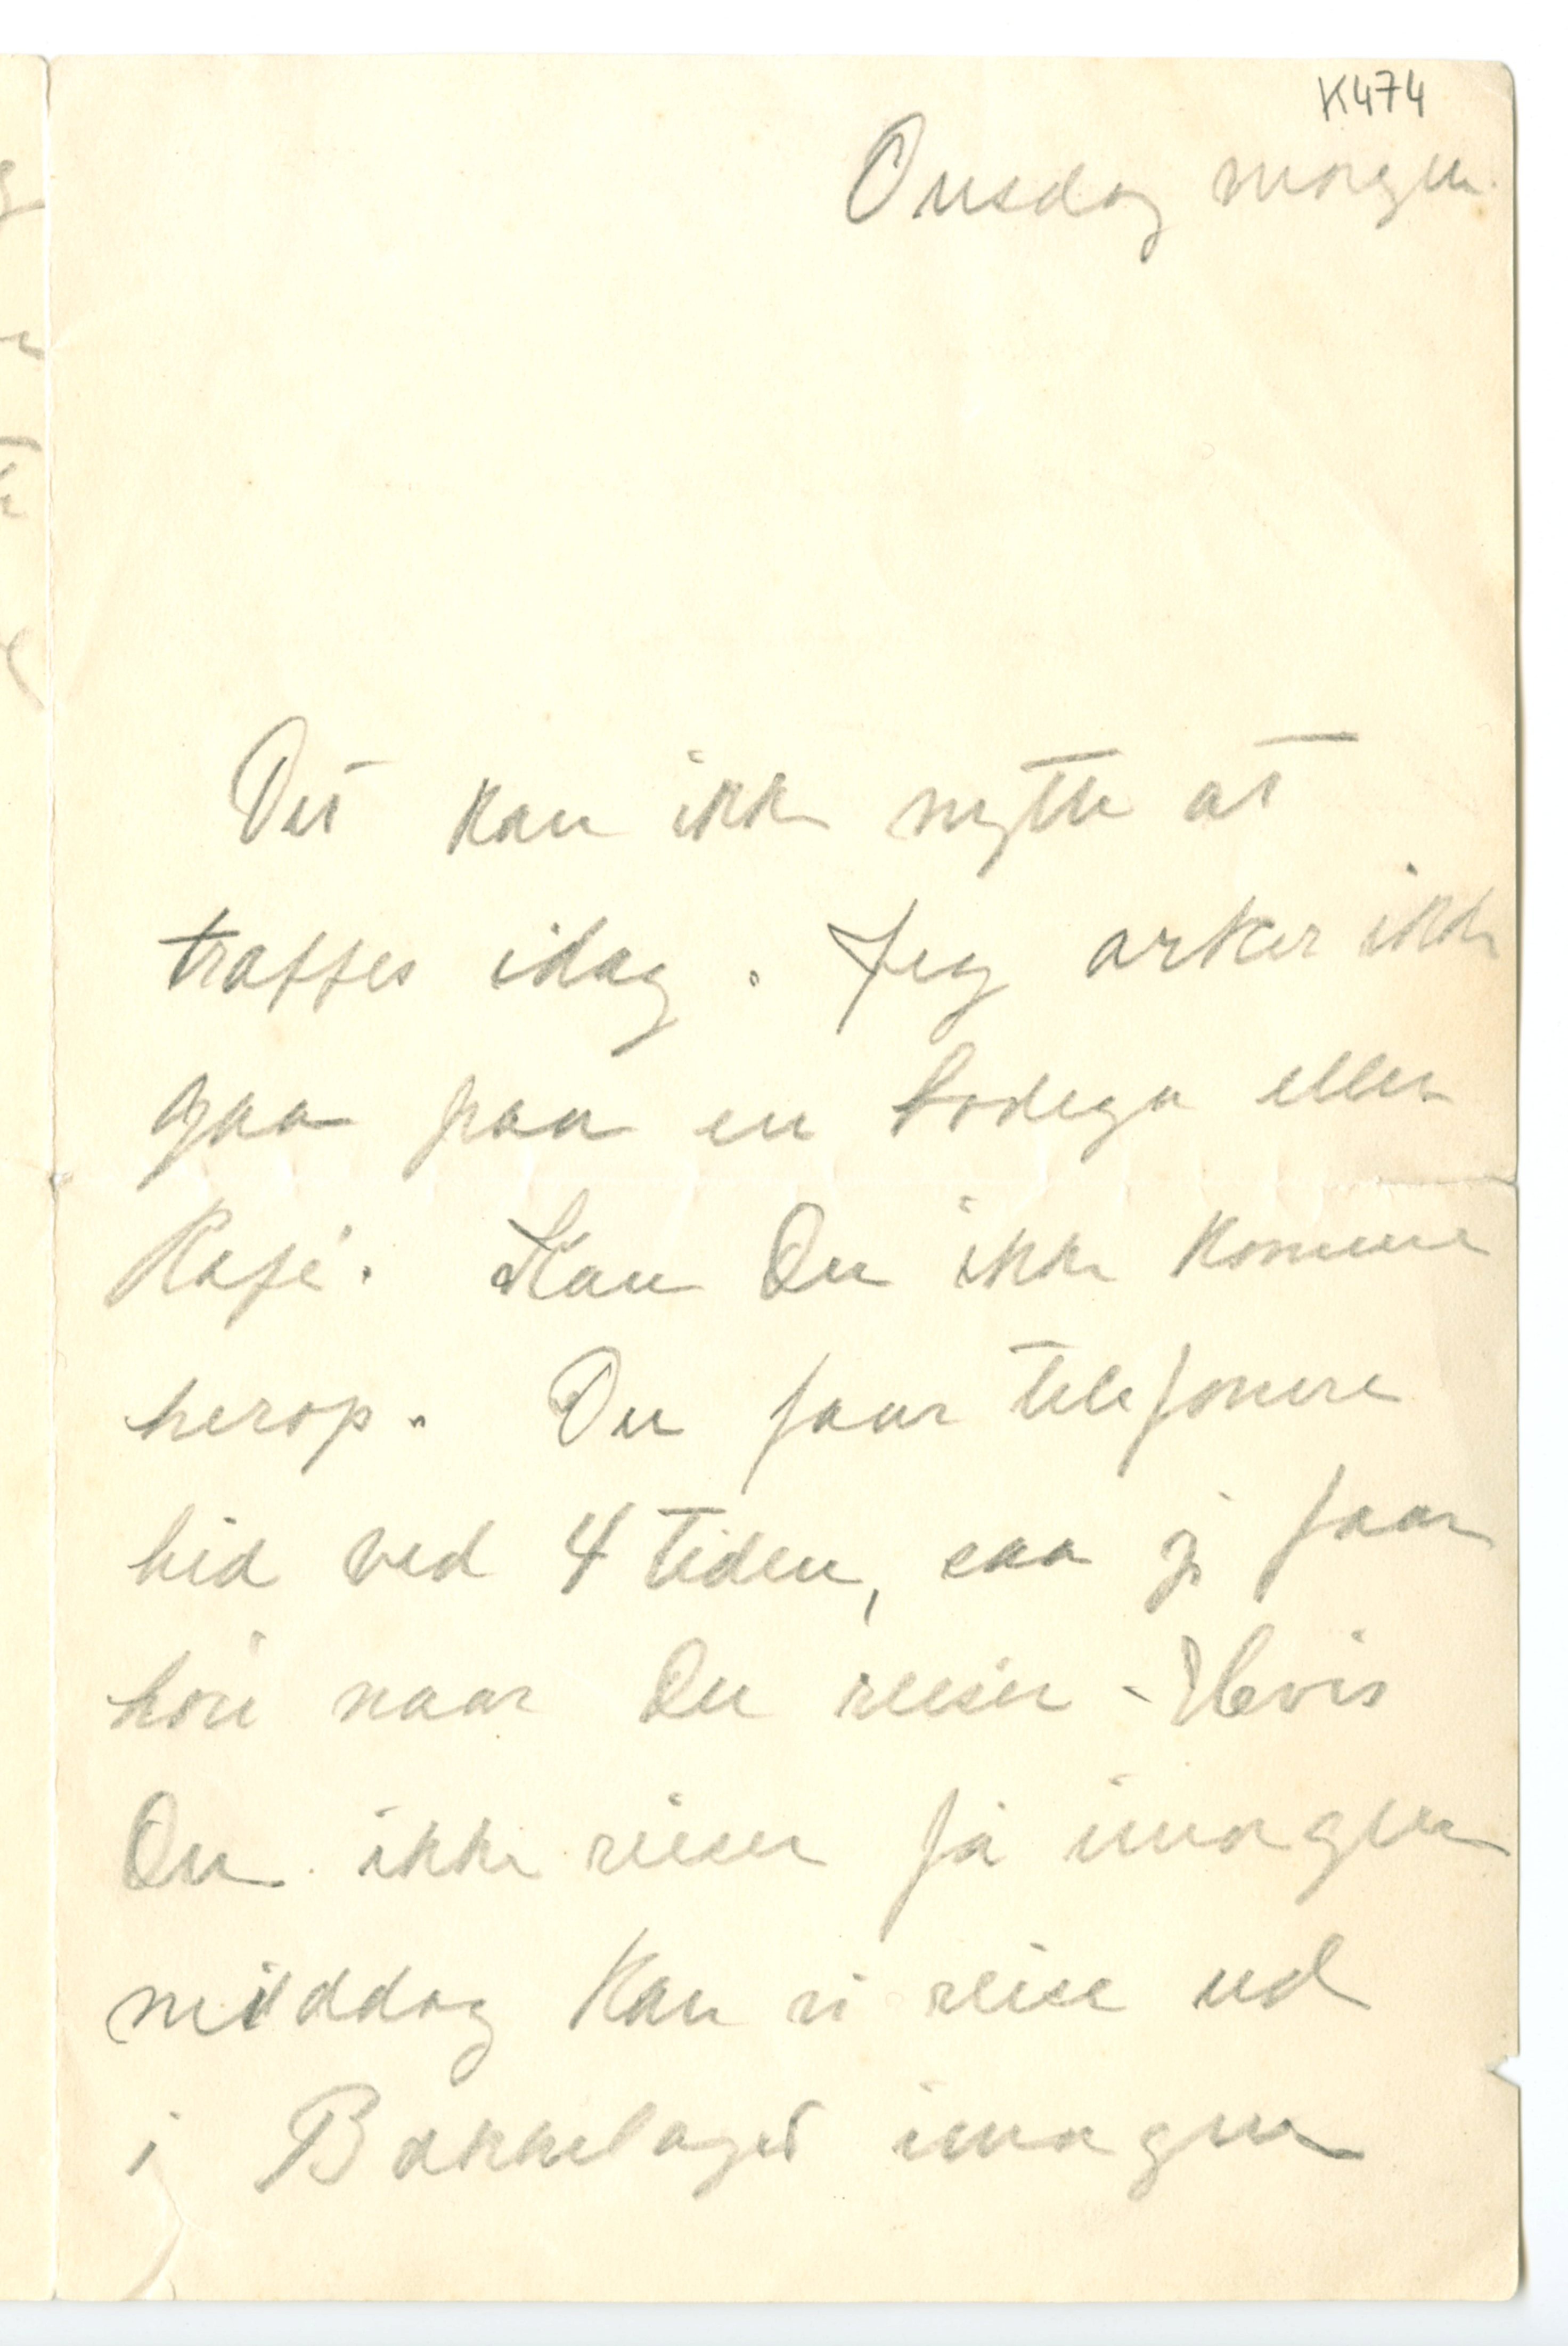 K474
Onsdag morgen.
Det kan ikke nytte at
traffes idag. Jeg orker ikke
gaa paa en bodega eller
Kafé. Kan Du ikke komme
herop. Du faar telefonere
hid ved 4 tiden, saa jeg faar
høre naar Du reiser - Hvis
Du ikke reiser før imorgen
middag kan vi reise ud
i Bækkelaget imorgen